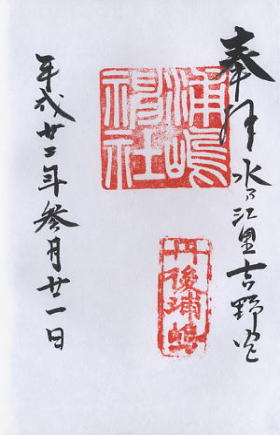 奉拝 水乃江里吉野宮
丹後浦嶋
浦嶋
神社
平成廿二年参月廿一日